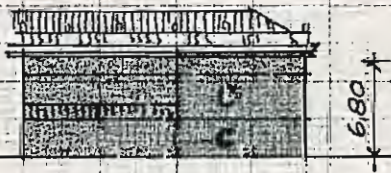 L
C
6,80